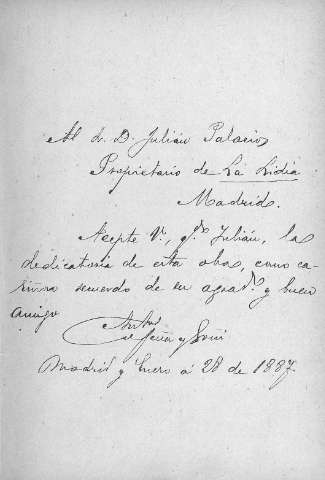 Al Sr. D. Julián Palacios
Propietario de La Lidia
Madrid.
Acepte V., q.do Julián, la
dedicatoria de esta obra, como ca-
riñoso recuerdo de su agrad.o y buen
amigo
Antonio
Peña y Goñi
Madrid y Enero á 28 de 1887.